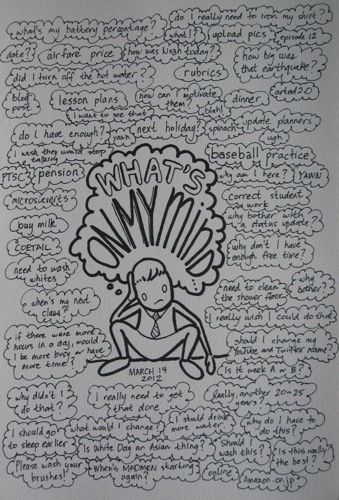 what's my battery percentage?
do I really need to iron my shirt?
what!?
upload pics
episode 12
date??
airfare price
how was Noah today?
how big was
that earthquake?
did I turn off the hot water?
rubrics
blog
post
lesson plans
how can I motivate
them?
dinner
Carted 2.0
I want to see that
blah!
update planners
do I have enough?
yawn
next holiday!
spinach
ugh
I wish they would stop
talking
baseball practice
PTSC
pension
why am I here?
YAWN
WHAT'S
ON MY MIND
microsieverts
Correct student
work
buy milk
why bother with
a status update?
COETAIL
why don't I have
enough free time?
need to wash
whites
need to clean
the shower floor
why
bother?
when's my next
class?
I really wish I could do that
if there were more
hours in a day, would
I be more busy or have
more time?
should I change my
YouTube and Twitter name?
MARCH 14
2012
Is it week A or B?
why didn't I
do that?
I really need to get
that done
Really, another 20-25
years?
I should go
to sleep earlier
what would I change?
I should drink
more water
why do I have to
do this?
Is White Day an Asian thing?
Should I
wash this?
Is this really
the best?
Please wash your
brushes!
When's MADMEN starting
again?
online
Amazon.co.jp